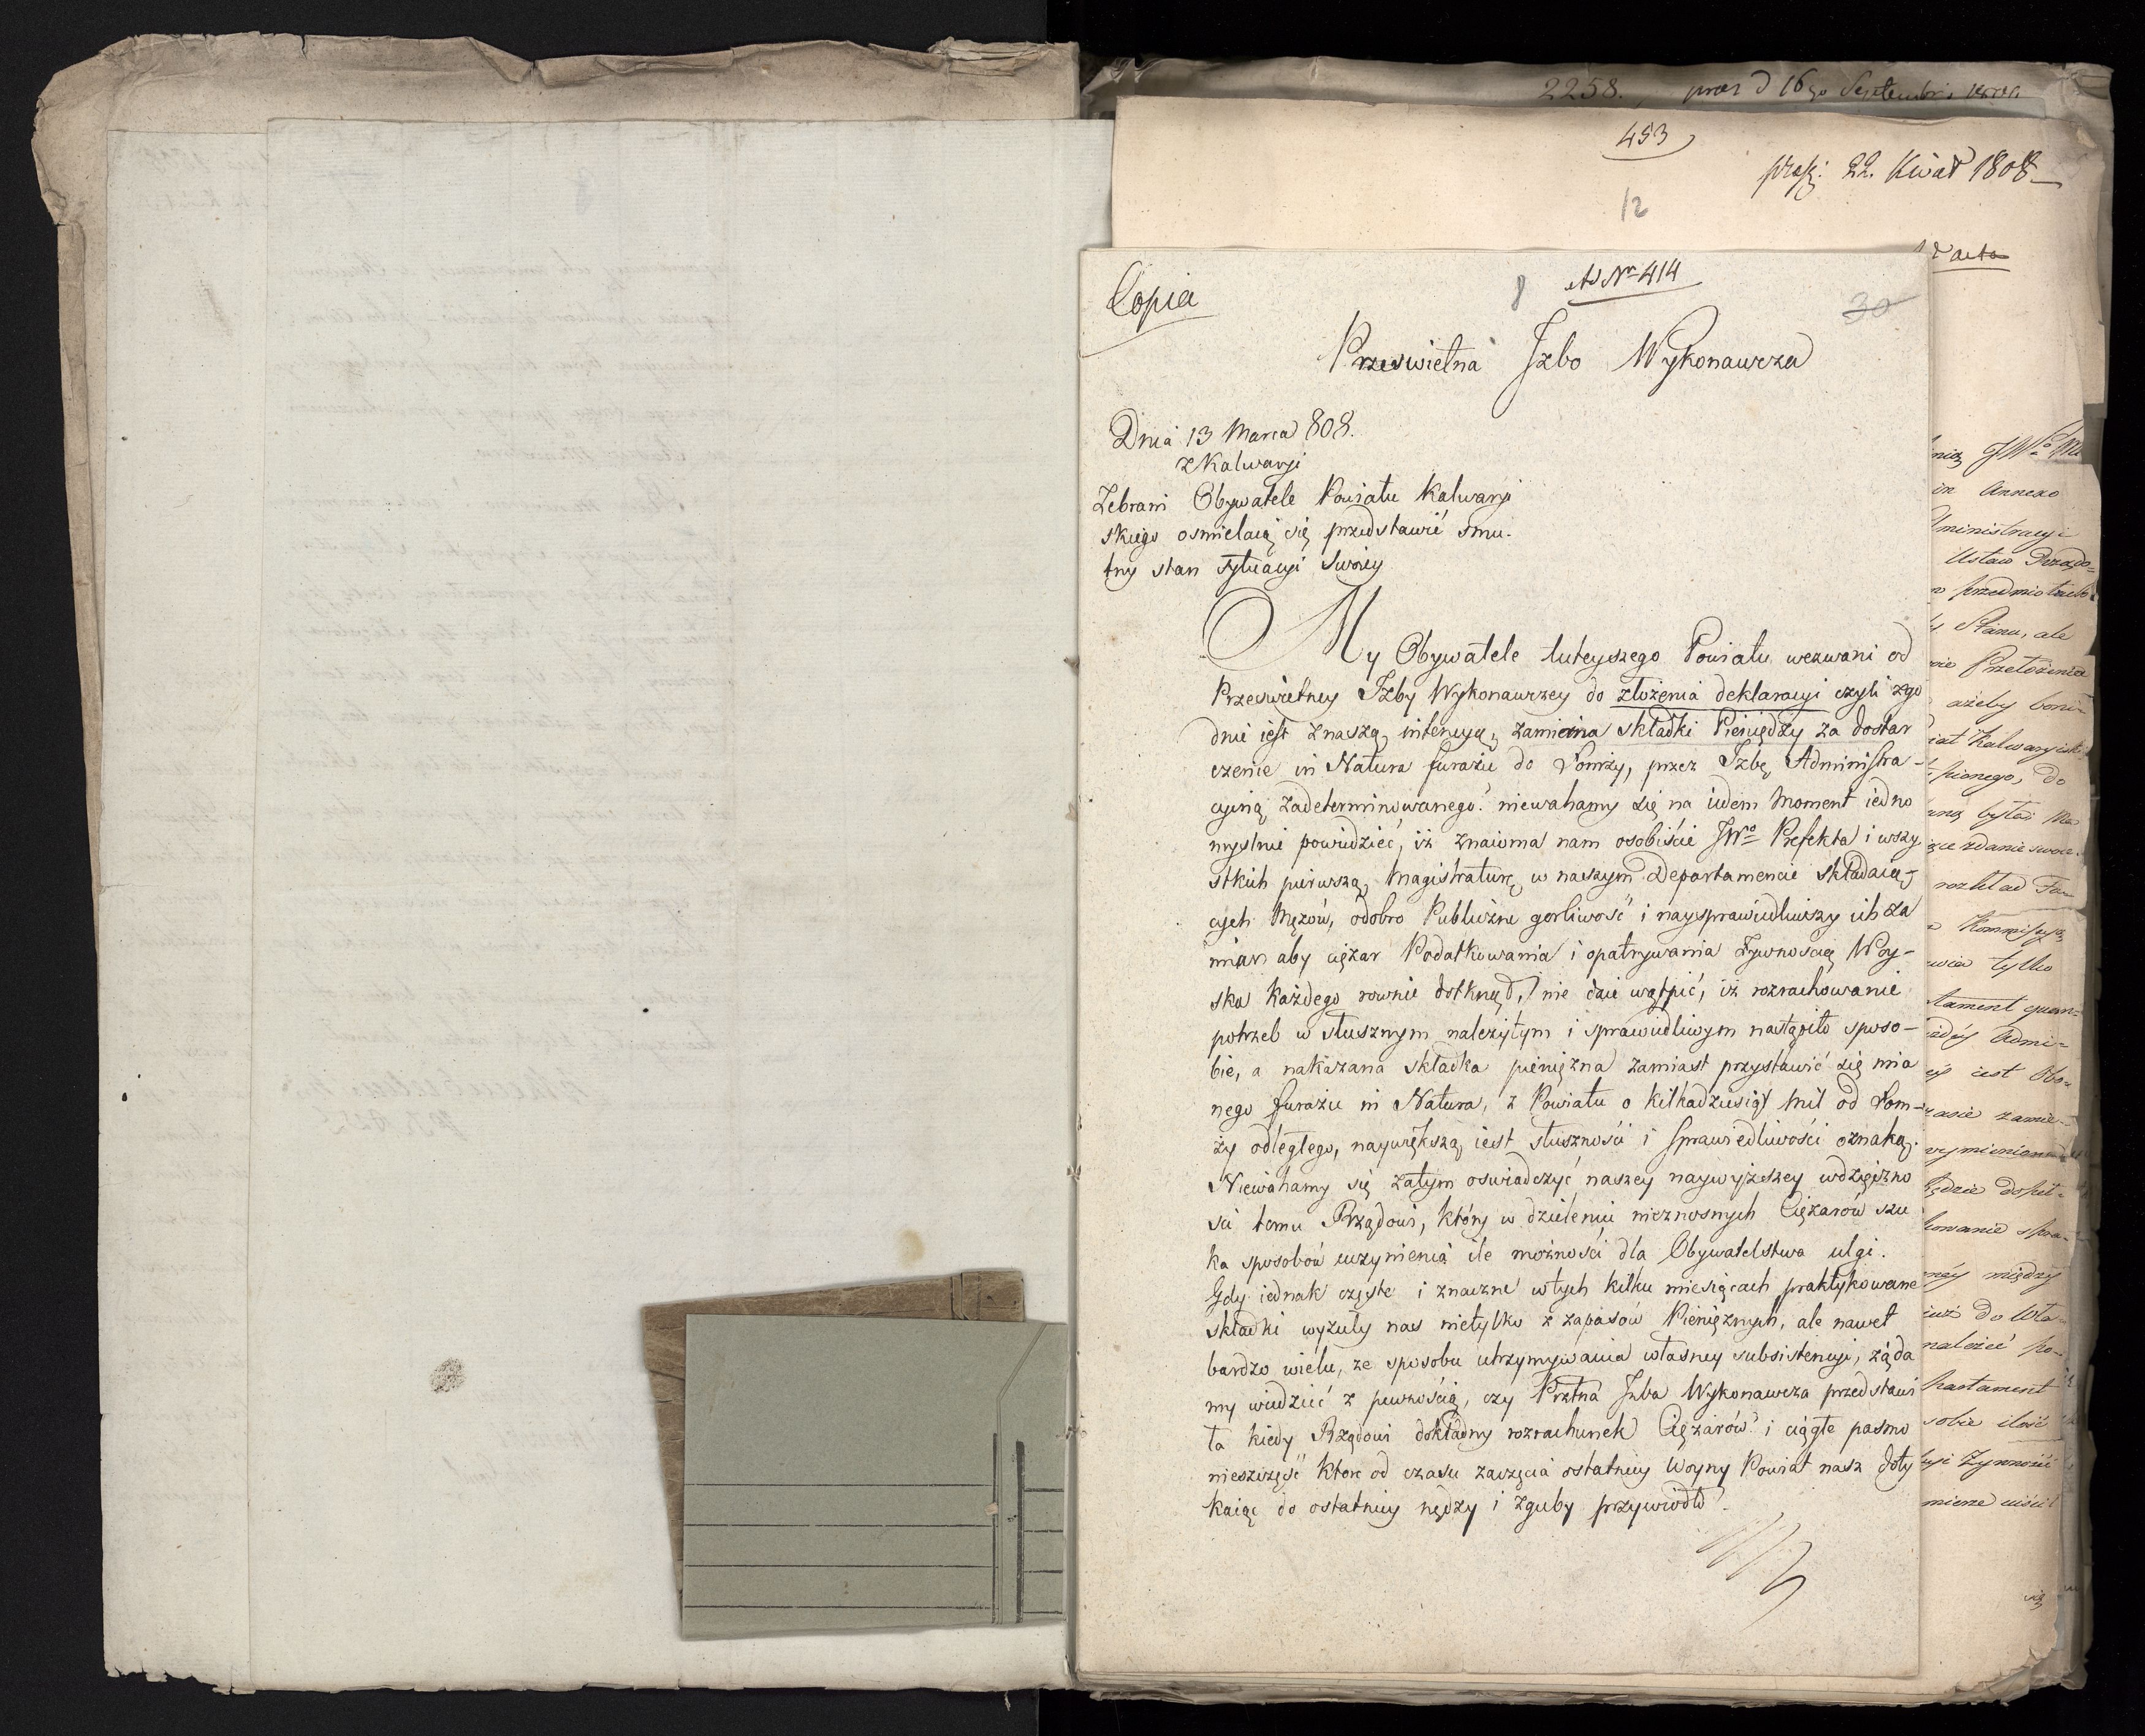 2258. 16go Septembris
453
12
22. Kwiet 1808
Copia
8
Ad Nr 414
30
Przeswietna Izbo Wykonawcza
Dnia 13 Marca 808.
z Kalwaryi
Zebrani Obywatele Powiatu Kalwaryi
skiego osmielaią się przedstawić smu-
tny stan sytuacyi Swoiey
My Obywatele tuteyszego Powiatu wezwani od
Przeswietney Izby Wykonawczey do złożenia deklaracyi czyli zgo
dnie iest z naszą intencyą, zamiana składki Pieniędzy za dostar
czenie in Natura furażu do Łomży, przez Izbę Administra-
cyiną zadeterminowanego? niewahamy się na idem Moment iedno
myslnie powiedzieć, iż znaioma nam osobiście JWo Prefekta i wszy
stkich pierwszą Magistraturę w naszym Departamencie składaią-
cych Mężów, o dobro Publiczne gorliwość i naysprawiedliwszy ich za
miar aby ciężar Podatkowania i opatrywania żywnością Woy-
ska każdego rownie dotknął, nie daie wątpić, iż rozrachowanie
potrzeb w słusznym należytym i sprawiedliwym nastąpiło sposo-
bie, a nakazana składka pieniężna zamiast przystawić się mia
nego furażu in Natura, z Powiatu o kilkadziesiąt mil od Łom-
ży odległego, naywiększą iest słuszności i sprawiedliwości oznaką.
Niewahamy się zatym oswiadczyć naszey naywyższey wdzięczno
sci temu Rządowi, który w dzieleniu nieznosnych Ciężarów szu
ka sposobów uczynienia ile możności dla Obywatelstwa ulgi.
Gdy iednak częste i znaczne w tych kilku miesiącach praktykowane
składki wyzuły nas nietylko z zapasów Pieniężnych, ale nawet
bardzo wielu, ze sposobu utrzymywania własney subsistencyi, żąda
my wiedzieć z pewnością, czy Prztna Izba Wykonawcza przedstawi
ła kiedy Rządowi dokładny rozrachunek Ciężarów i ciągłe pasmo
nieszczęść ktore od czasu zaczęcia ostatniey Woyny Powiat nasz doty
kaiąc do ostatniey nędzy i zguby przywiodło.
in Annexo
ministracyi
Ustaw Rządo-
Stanu, ale
Przełożenia
ażeby
iat Kalwaryiski
pionego, do
była
zdanie swoie
rozkład
Kommissyą
tylko
tament quan-
Admi-
iest
czasie zamie-
wymienion
będzie
między
do Wła-
należeć po-
hartament
sobie ilość
Żywności
mierze uiścił
się